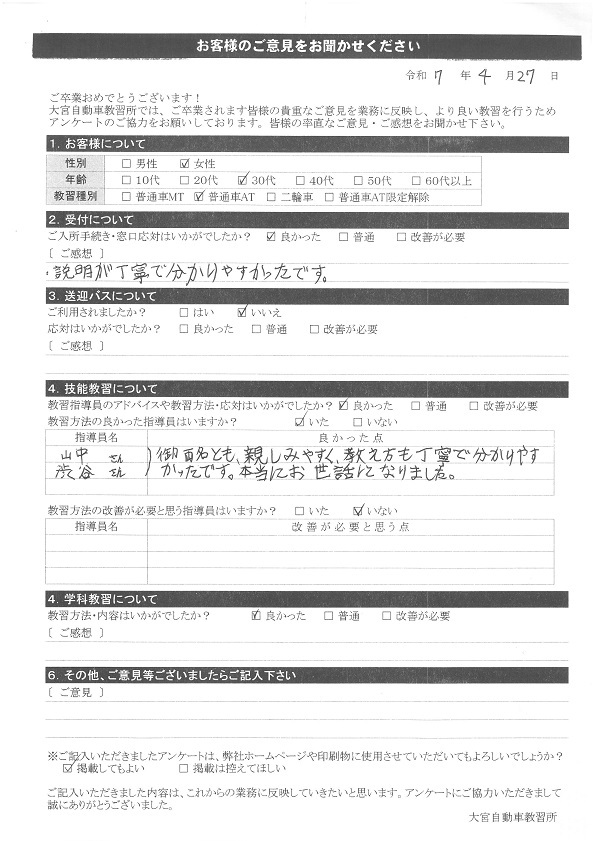 お客様のご意見をお聞かせください
令和 7 年 4 月 27 日
ご卒業おめでとうございます！
大宮自動車教習所では、ご卒業されます皆様の貴重なご意見を業務に反映し、より良い教習を行うため
アンケートのご協力をお願いしております。皆様の率直なご意見・ご感想をお聞かせ下さい。
1. お客様について
性別 □ 男性 ☑ 女性
年齢 □ 10代 □ 20代 ☑ 30代 □ 40代 □ 50代 □ 60代以上
教習種別 □ 普通車MT ☑ 普通車AT □ 二輪車 □ 普通車AT限定解除
2. 受付について
ご入所手続き・窓口応対はいかがでしたか？ ☑ 良かった □ 普通 □ 改善が必要
［ ご感想 ］
説明が丁寧で分かりやすかったです。
3. 送迎バスについて
ご利用されましたか？ □ はい ☑ いいえ
応対はいかがでしたか？ □ 良かった □ 普通 □ 改善が必要
［ ご感想 ］
4. 技能教習について
教習指導員のアドバイスや教習方法・応対はいかがでしたか？ ☑ 良かった □ 普通 □ 改善が必要
教習方法の良かった指導員はいますか？ ☑ いた □ いない
指導員名 良かった点
山中 さん 御両名とも、親しみやすく、教え方も丁寧で分かりやす
渋谷 さん かったです。本当にお世話になりました。
教習方法の改善が必要と思う指導員はいますか？ □ いた ☑ いない
指導員名 改善が必要と思う点
4. 学科教習について
教習方法・内容はいかがでしたか？ ☑ 良かった □ 普通 □ 改善が必要
［ ご感想 ］
6. その他、ご意見等ございましたらご記入下さい
［ ご意見 ］
※ご記入いただきましたアンケートは、弊社ホームページや印刷物に使用させていただいてもよろしいでしょうか？
☑ 掲載してもよい □ 掲載は控えてほしい
ご記入いただきました内容は、これからの業務に反映していきたいと思います。アンケートにご協力いただきまして
誠にありがとうございました。
大宮自動車教習所